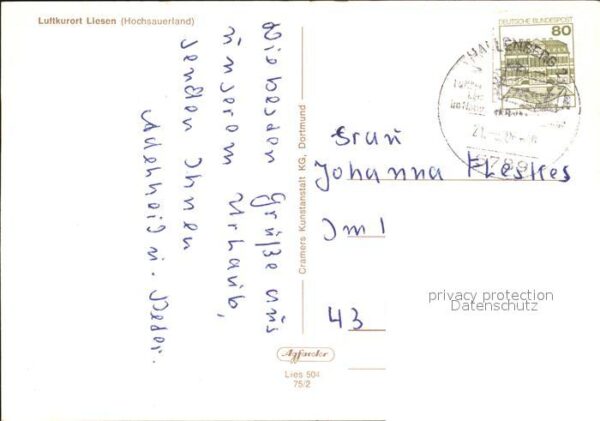 Luftkurort Liesen (Hochsauerland)
Die besten Grüße aus
unserem Urlaub,
senden Ihnen
Adelheid u. Peter.
Cramers Kunstanstalt KG, Dortmund
Agfacolor
Lies 504
75/2
DEUTSCHE BUNDESPOST
80
HALLENBERG
5789
Frau
Johanna
Im
43
privacy protection
Datenschutz